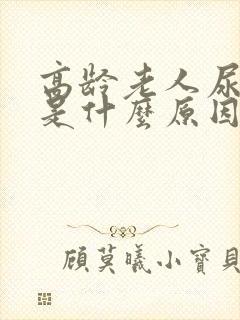 高龄老人尿
是什麼原因
顾莫曦小寶貝